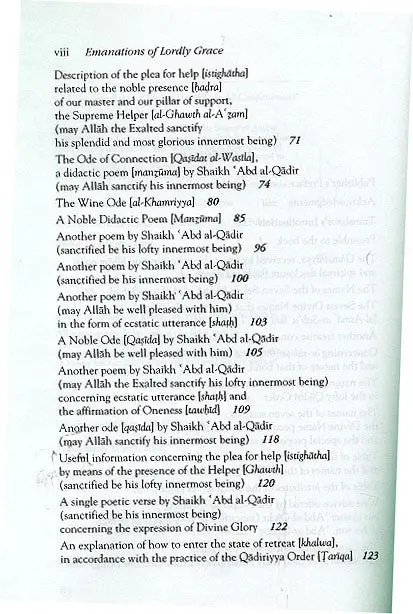 viii Emanations of Lordly Grace
Description of the plea for help [istighātha]
related to the noble presence [ḥaḍra]
of our master and our pillar of support,
the Supreme Helper [al-Ghawth al-Aʿẓam]
(may Allāh the Exalted sanctify
his splendid and most glorious innermost being) 71
The Ode of Connection [Qaṣīdat al-Waṣīla],
a didactic poem [manẓūma] by Shaikh ʿAbd al-Qādir
(may Allāh sanctify his innermost being) 74
The Wine Ode [al-Khamriyya] 80
A Noble Didactic Poem [Manẓūma] 85
Another poem by Shaikh ʿAbd al-Qādir
(sanctified be his lofty innermost being) 96
Another poem by Shaikh ʿAbd al-Qādir
(sanctified be his innermost being) 100
Another poem by Shaikh ʿAbd al-Qādir
(may Allāh be well pleased with him)
in the form of ecstatic utterance [shaṭḥ] 103
A Noble Ode [Qaṣīda] by Shaikh ʿAbd al-Qādir
(may Allāh be well pleased with him) 105
Another poem by Shaikh ʿAbd al-Qādir
(may Allāh the Exalted sanctify his lofty innermost being)
concerning ecstatic utterance [shaṭḥ] and
the affirmation of Oneness [tawḥīd] 109
Another ode [qaṣīda] by Shaikh ʿAbd al-Qādir
(may Allāh sanctify his innermost being) 118
Useful information concerning the plea for help [istighātha]
by means of the presence of the Helper [Ghawth]
(sanctified be his lofty innermost being) 120
A single poetic verse by Shaikh ʿAbd al-Qādir
(sanctified be his innermost being)
concerning the expression of Divine Glory 122
An explanation of how to enter the state of retreat [khalwa],
in accordance with the practice of the Qādiriyya Order [Ṭarīqa] 123